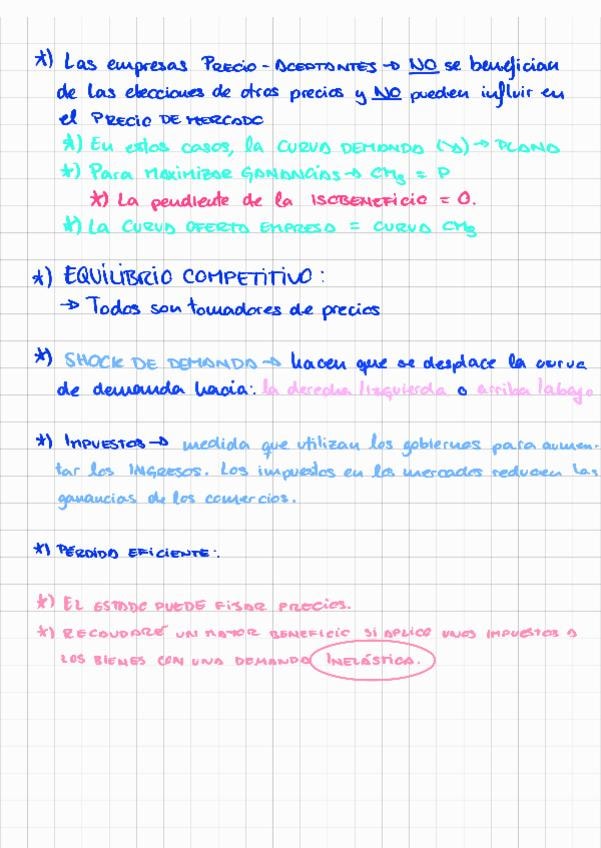 *) Las empresas PRECIO-ACEPTANTES → NO se benefician
de las elecciones de otros precios y NO pueden influir en
el PRECIO DE MERCADO
*) En estos casos, la CURVA DEMANDA (↘) → PLANA
*) Para MAXIMIZAR GANANCIAS → CMg = P
*) La pendiente de la ISOBENEFICIO = 0.
*) LA CURVA OFERTA EMPRESA = CURVA CMg
*) EQUILIBRIO COMPETITIVO:
→ Todos son tomadores de precios
*) SHOCK DE DEMANDA → hacen que se desplace la curva
de demanda hacia: la derecha/izquierda o arriba/abajo
*) IMPUESTOS → medida que utilizan los gobiernos para aumen-
tar los INGRESOS. Los impuestos en los mercados reducen las
ganancias de los comercios.
*) PÉRDIDA EFICIENTE:
*) EL ESTADO PUEDE FIJAR PRECIOS.
*) RECAUDARÉ UN MAYOR BENEFICIO SI APLICO UNOS IMPUESTOS A
LOS BIENES CON UNA DEMANDA INELÁSTICA.